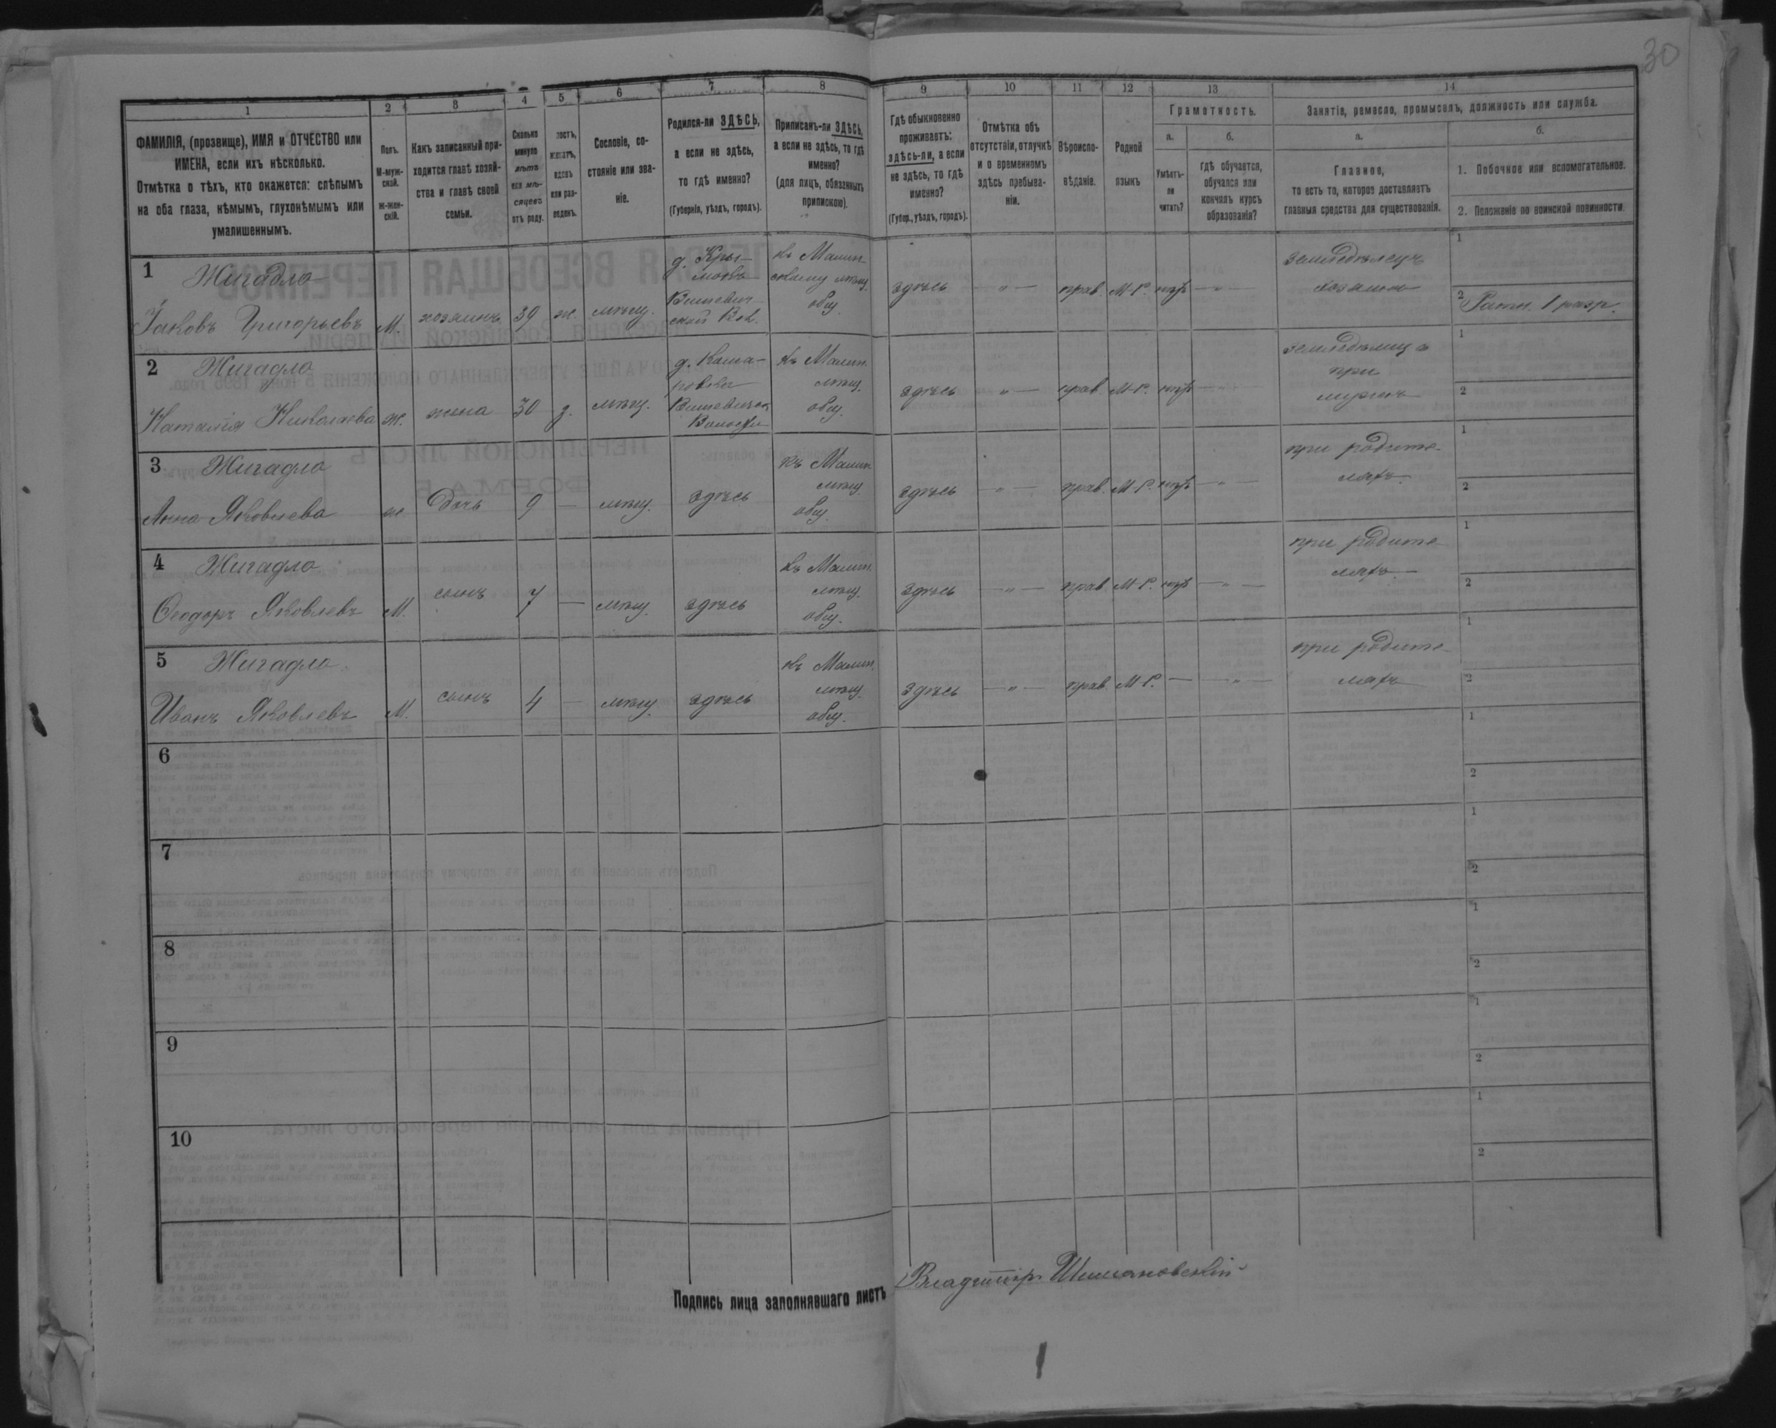 30
1
2
3
4
5
6
7
8
9
10
11
12
13
14
ФАМИЛІЯ, (прозвище), ИМЯ и ОТЧЕСТВО или
ИМЕНА, если ихъ нѣсколько.
Отмѣтка о тѣхъ, кто окажется: слѣпымъ
на оба глаза, нѣмымъ, глухонѣмымъ или
умалишеннымъ.
Полъ.
М-муж-
ской.
ж-жен-
скій.
Какъ записанный при-
ходится главѣ хозяй-
ства и главѣ своей
семьи.
Сколько
минуло
лѣтъ
или мѣ-
сяцевъ
отъ роду.
Сословіе, со-
стояніе или зва-
ніе.
Родился-ли ЗДѢСЬ,
а если не здѣсь,
то гдѣ именно?
(Губернія, уѣздъ, городъ).
Приписанъ-ли ЗДѢСЬ,
а если не здѣсь, то гдѣ
именно?
(для лицъ, обязанныхъ
припискою).
Гдѣ обыкновенно
проживаетъ:
здѣсь-ли, а если
не здѣсь, то гдѣ
именно?
(Губер., уѣздъ, городъ).
Отмѣтка объ
отсутствіи, отлучкѣ
и о временномъ
здѣсь пребыва-
ніи.
Вѣроиспо-
вѣданіе.
Родной
языкъ
Грамотность.
а.
Умѣетъ-
ли
читать?
б.
гдѣ обучается,
обучался или
кончилъ курсъ
образованія?
Занятіе, ремесло, промыселъ, должность или служба.
а.
Главное,
то есть то, которое доставляетъ
главныя средства для существованія.
б.
1. Побочное или вспомогательное.
2. Положеніе по воинской повинности
1 Жигадло
Іаковъ Григорьевъ М. хозяинъ 39 ж. мѣщ.
Вишевич-
ской Вол.
къ Малин-
скому мѣщ.
общ.
здѣсь — " — прав. М-Р. нѣтъ — " —
земледѣлецъ
хозяинъ
1
2 Ратн. 1 разр.
2 Жигадло
Наталія Николаева ж. жена 30 з. мѣщ.
Вишевичск.
Волости
къ Малин.
мѣщ.
общ.
здѣсь — " — прав. М-Р. нѣтъ — " —
земледѣлица
при
мужѣ
1
2
3 Жигадло
Анна Яковлева ж дочь 9 — мѣщ. здѣсь
къ Малин.
мѣщ.
общ.
здѣсь — " — прав. М-Р. нѣтъ — " —
при родите-
ляхъ.
1
2
4 Жигадло
Ѳеодоръ Яковлевъ М. сынъ 7 — мѣщ. здѣсь
къ Малин.
мѣщ.
общ.
здѣсь — " — прав. М-Р. нѣтъ — " —
при родите-
ляхъ.
1
2
5 Жигадло
Иванъ Яковлевъ М. сынъ 4 — мѣщ. здѣсь
къ Малин.
мѣщ.
общ.
здѣсь — " — прав. М-Р. — — " —
при родите-
ляхъ
1
2
6
1
2
7
1
2
8
1
2
9
1
2
10
1
2
Подпись лица заполнявшаго листъ Владиміръ